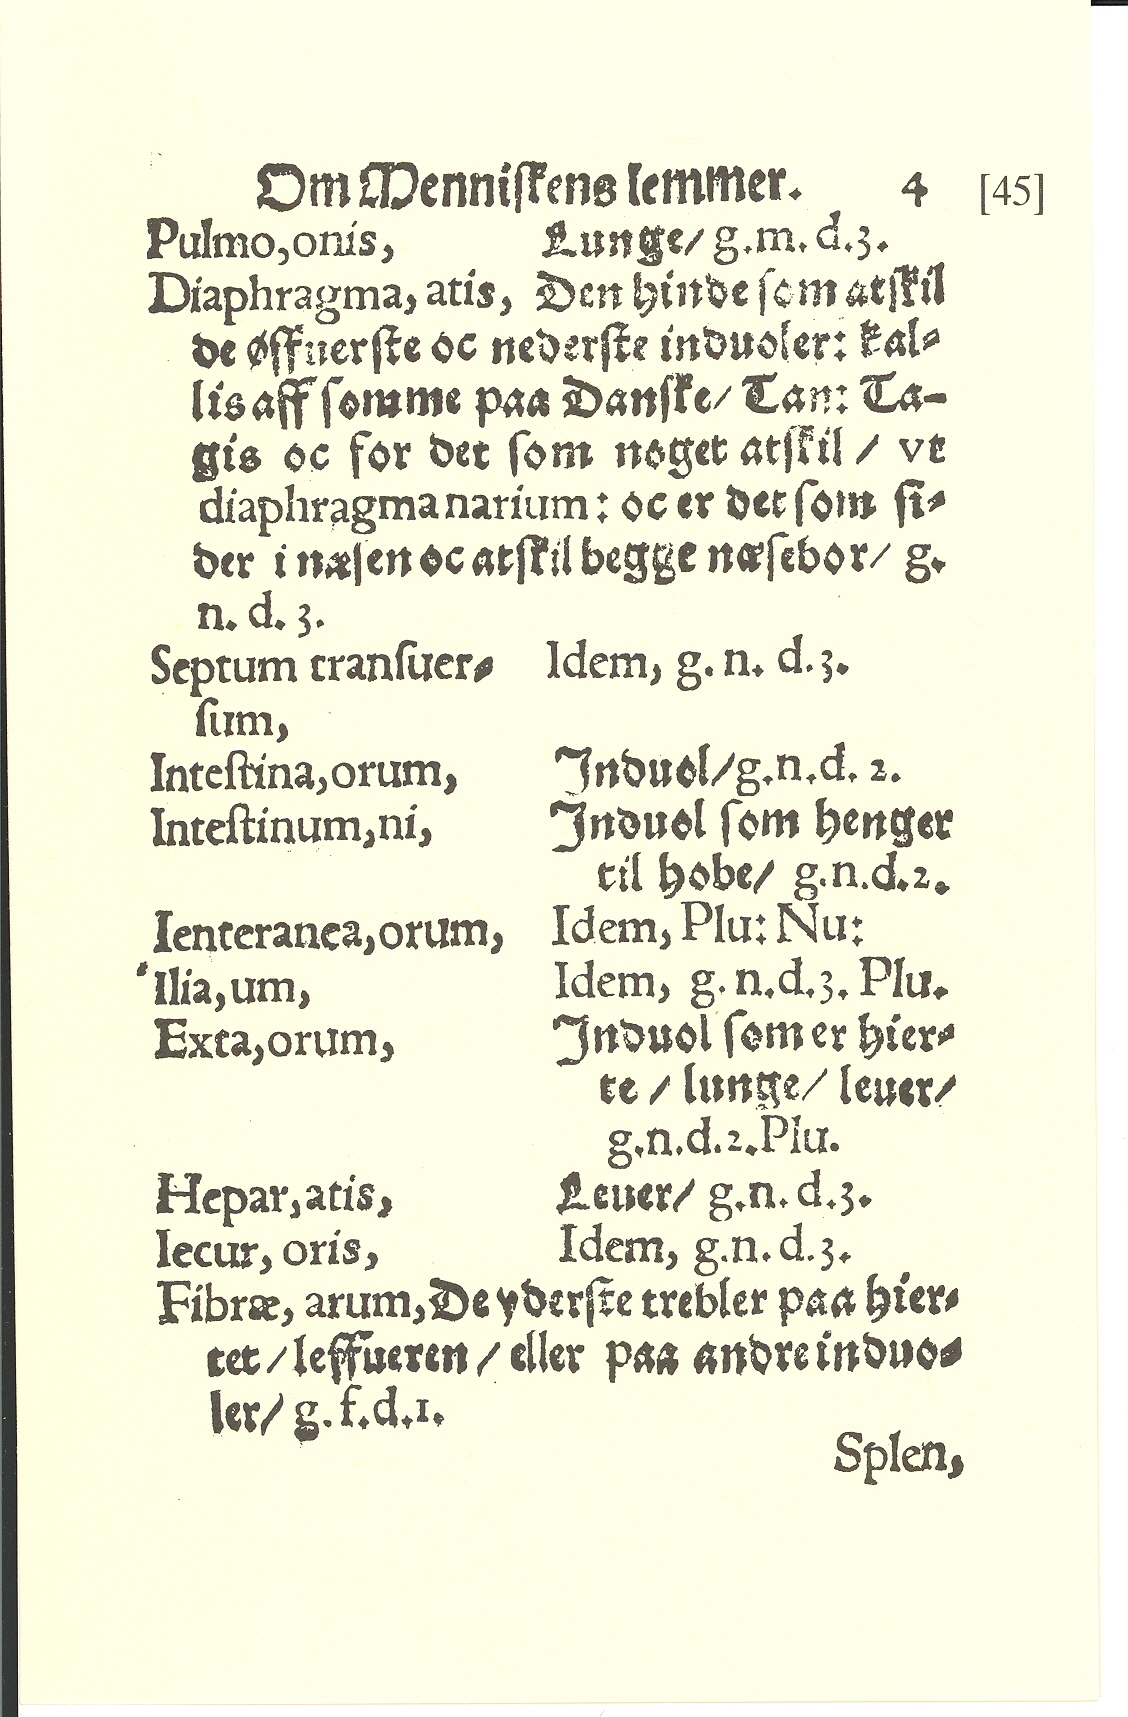 Om Menniſkens lemmer. 4 [45]
Pulmo, onis, Lunge/ g.m. d.3.
Diaphragma, atis, Den hinde ſom atſkil
de øffuerſte oc nederſte induoler: kal⸗
lis aff ſomme paa Danſke/ Tan: Ta-
gis oc for det ſom noget atſkil / vt
diaphragma narium: oc er det ſom ſi⸗
der i næſen oc atſkil begge næſebor/ g.
n. d. 3.
Septum tranſuer⸗ Idem, g. n. d.3.
ſum,
Inteſtina, orum, Induol/g.n.d. 2.
Inteſtinum, ni, Induol ſom henger
til hobe/ g.n.d.2.
Ienteranea, orum, Idem, Plu: Nu:
Ilia, um, Idem, g. n.d.3. Plu.
Exta, orum, Induol ſom er hier⸗
te / lunge/ leuer/
g.n.d.2.Plu.
Hepar, atis, Leuer/ g.n. d.3.
Iecur, oris, Idem, g.n. d.3.
Fibræ, arum, De yderſte trebler paa hier⸗
tet / leffueren / eller paa andre induo⸗
ler/ g. f.d.1.
Splen,